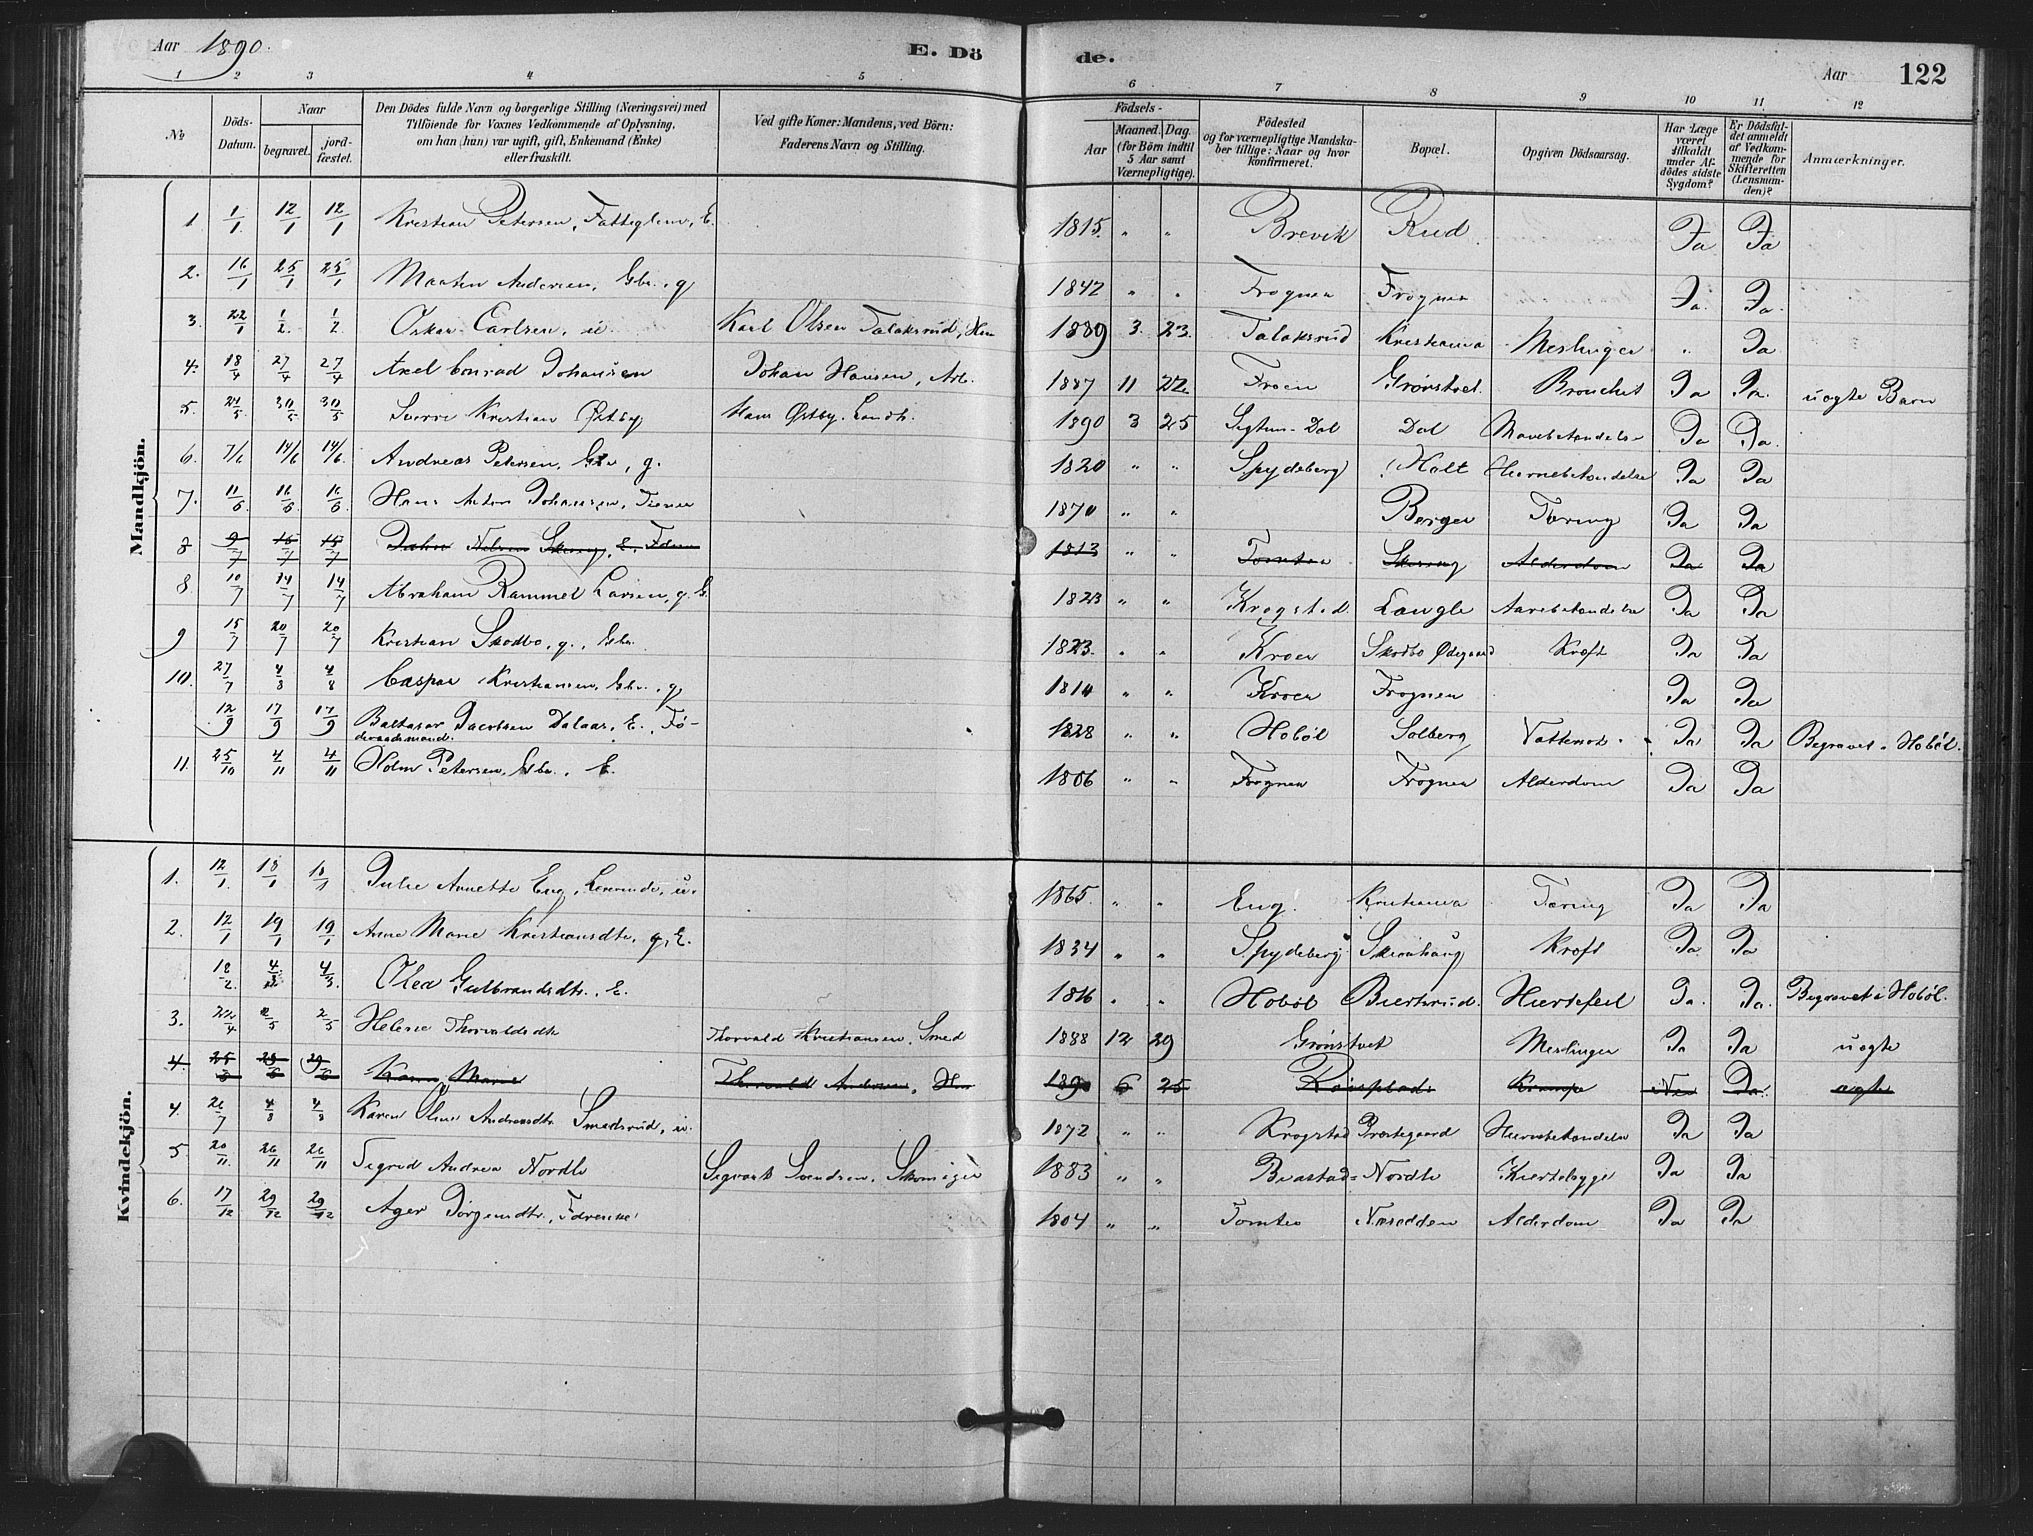 Aar 1890. E. Dö de. Aar 122
1 2 3 4 5 6 7 8 9 10 11 12
No
Döds-Datum.
Naar
begravet.
jord-fæstet.
Den Dödes fulde Navn og borgerlige Stilling (Næringsvei) med
Tilföiende for Voxnes Vedkommende af Oplysning,
om han (hun) var ugift, gift, Enkemand (Enke)
eller fraskilt.
Ved gifte Koner: Mandens, ved Börn:
Faderens Navn og Stilling.
Födsels-
Aar
Maaned. Dag.
(for Börn indtil
5 Aar samt
Værnepligtige).
Födested
og for værnepligtige Mandska-
ber tillige: Naar og hvor
konfirmeret.
Bopæl.
Opgiven Dödsaarsag.
Har Læge
været
tilkaldt
under Af-
dödes sidste
Sygdom?
Er Dödsfal-
det anmeldt
af Vedkom-
mende for
Skifteretten
(Lensman-
den)?
Anmærkninger.
Mandkjön.
1. 1/1 12/1 12/1 Kristian Petersen, Fattiglem, E. 1815. " " Brevik Rud. Ja Ja
2. 16/1 25/1 25/1 Andersen, Gbr., g 1842 " " Frogner Frogner Ja. Ja.
3. 22/1 1/2. 1/2. Oskar Carlsen, u. Karl Olsen Talaksrud, 1889 3. 23. Talaksrud Kristiania Meslinger " Ja
4. 18/4 27/4 27/4 Axel Conrad Johansen Johan Hansen, Arb. 1887 11 22. Froen Grønstvet Bronchit Ja Ja. uægte Barn
5. 24/5 30/5 30/5 Sverre Kristian Østby Hans Østby, Landh. 1890 3 25 Dal Dal Mavebetændelse Ja Ja.
6. 7/6 14/6 14/6. Andreas Petersen, Gbr, g. 1820 " " Spydeberg Holt Hiernebetændelse Ja Ja
7. 11/6. 16/6 16/6. Hans Anton Johansen, Tiener 1870 " " Berger Tæring Ja Ja
8 9/7 15/7 15/7 Nilsen E. 1813 " " Tomter Alderdom Ja Ja
8 10/7 14/7 14/7 Abraham Rammel Larsen, g. G. 1823 " " Krogstad Langli Aarebetændelse Ja Ja
9 15/7 20/7 20/7 Kristian Skodbo, g., Gbr. 1823. " " Kroer Skodbo Ødegaard Kræft Ja Ja
10. 27/7 4/8 4/8 Caspar Kristiansen, Gbr., g 1814 " " Kroer Frogner Ja Ja
12/9 17/9 17/9 Baltasar Jacobsen Dalaas, E., Fö-
deraadsmand. 1828 " " Hobøl Solberg Vattersot. Ja Ja Begravet i Hobøl.
11. 25/10 4/11 4/11 Holm Petersen, Gbr., E. 1806 " " Frogner Frogner Alderdom Ja Ja
Kvindekjön.
1. 12/1. 18/1 18/1 Julie Annette Eng, Lærerinde, u. 1865. " " Eng. Kristiania Tæring Ja Ja
2. 12/1 19/1 19/1 Anne Marie Kristiansdtr, g, E. 1834 " " Spydeberg Kræft Ja. Ja
18/2. 4/3 4/3. Olea Gulbrandsdtr., E. 1816 " " Hobøl Hiertefeil Ja. Ja. Begravet i Hobøl.
3. 24/4 2/5 2/5 Helene Thorvaldsdtr Thorvald Kristiansen, Smed 1888 12 29 Grønstvet Meslinger Ja Ja uægte
4. 25/6 29/6 29/6 Karen Marie Thorvald Andersen, 1890 6 25 Krampe Nei Ja. ægte
4. 26/7 4/8 4/8 Karen Oline Andreasdtr Smedsrud, u. 1872 " " Krogstad Præstegaard Hiernebetændelse Ja Ja
5 20/11. 26/11 26/11 Sigrid Andrea Nordli Sigvart Svendsen, Skomager 1883 " " Nordli Kiertelsyge Ja Ja
6. 17/12 29/12 29/12 Jörgensdtr., 1804 " " Tomter Næsodden Alderdom Ja Ja